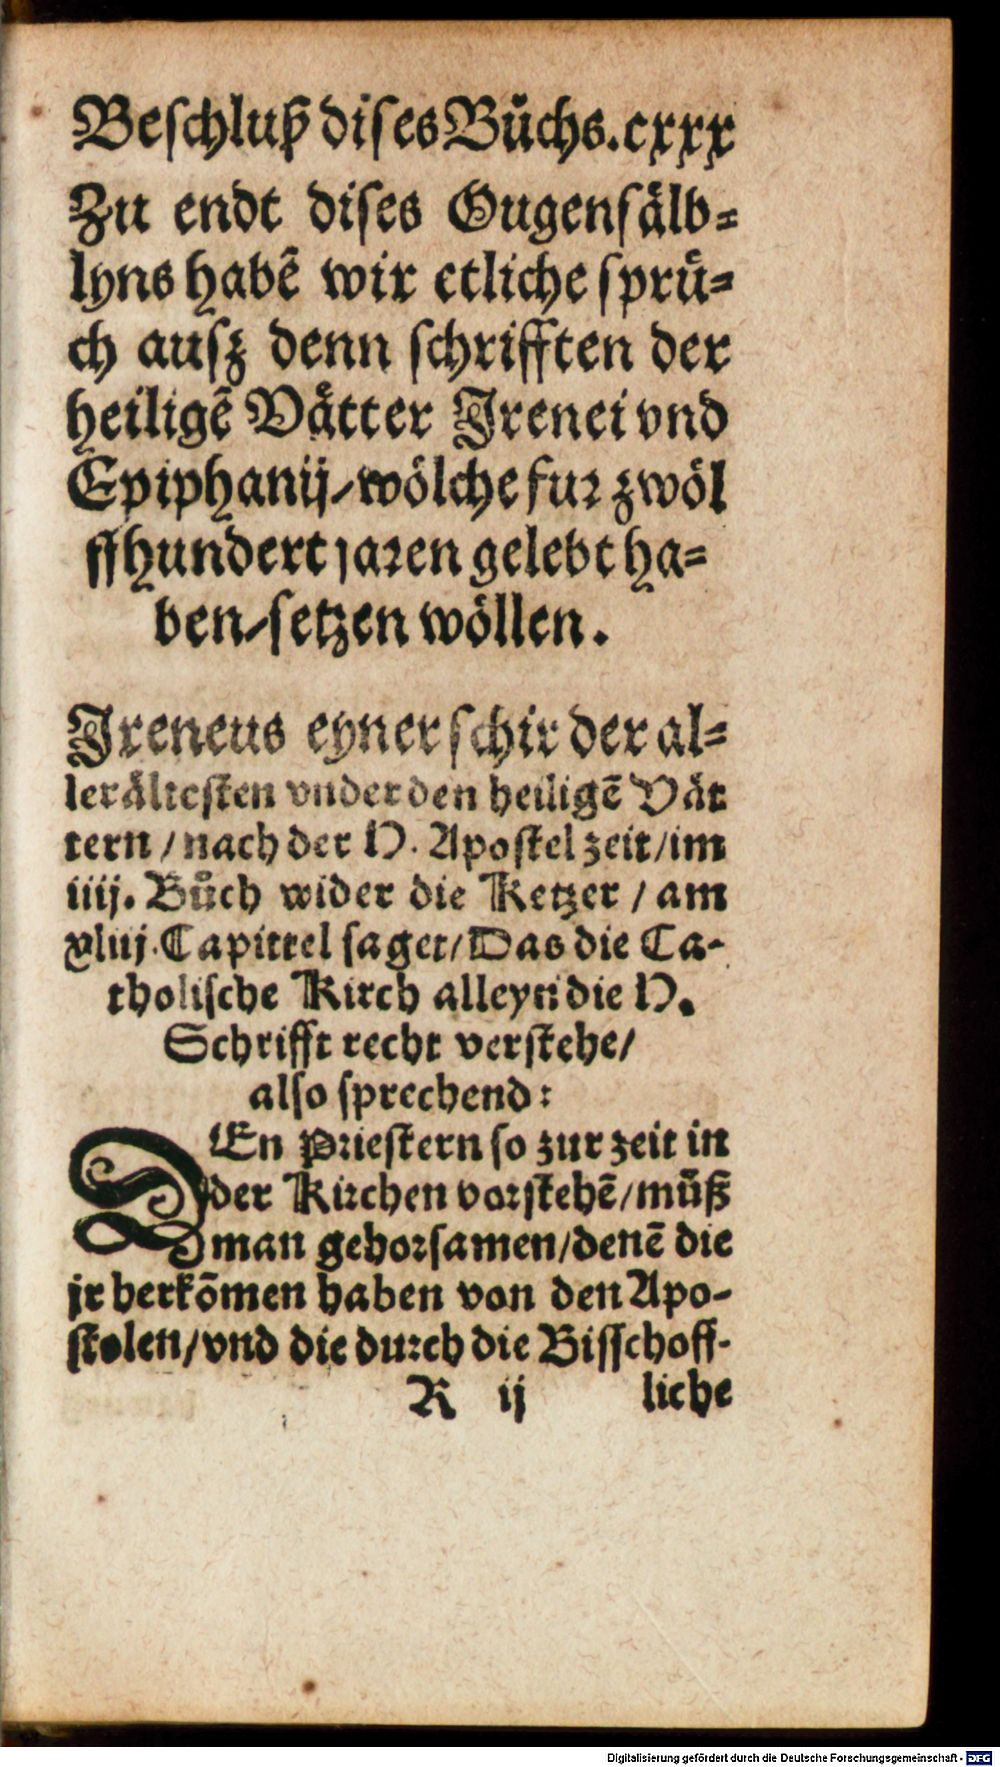 Beschluß dises Bůchs. cxxx
Zu endt dises Gugensälb-
lyns habẽ wir etliche sprü-
ch ausz denn schrifften der
heiligẽ Vätter Irenei vnd
Epiphanij/wölche fur zwöl
ffhundert jaren gelebt ha-
ben/setzen wöllen.
Ireneus eyner schir der al-
lerältesten vnder den heiligẽ Vät
tern/nach der H. Apostel zeit/im
iiij. Bůch wider die Ketzer/am
xliij. Capittel saget/Das die Ca-
tholische Kirch alleyn die H.
Schrifft recht verstehe/
also sprechend:
DEn Priestern so zur zeit in
der Kirchen vorstehẽ/můß
man gehorsamen/denẽ die
jr herkõmen haben von den Apo-
stolen/vnd die durch die Bisschoff-
R ij liche
Digitalisierung gefördert durch die Deutsche Forschungsgemeinschaft - DFG